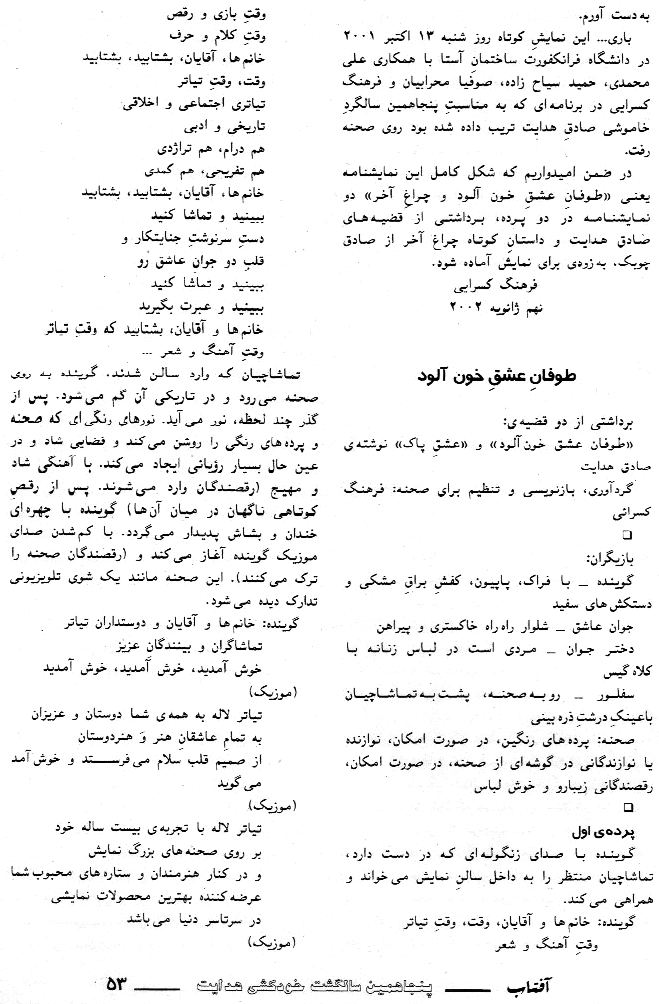 به دست آورم.
باری... این نمایشِ کوتاه روز شنبه ۱۳ اکتبر ۲۰۰۱
در دانشگاه فرانکفورت ساختمانِ آستا با همکاری علی
محمدی، حمید سیاح زاده، صوفیا محرابیان و فرهنگ
کسرایی در برنامه ای که به مناسبتِ پنجاهمین سالگردِ
خاموشی صادقِ هدایت تریب داده شده بود روی صحنه
رفت.
در ضمن امیدواریم که شکل کامل این نمایشنامه
یعنی «طوفانِ عشقِ خون آلود و چراغِ آخر» دو
نمایشنامه در دو پرده، برداشتی از قضیه های
صادق هدایت و داستانِ کوتاه چراغِ آخر از صادق
چوبک، به زودی برای نمایش آماده شود.
فرهنگ کسرایی
نهم ژانویه ۲۰۰۲
طوفانِ عشقِ خون آلود
برداشتی از دو قضیه ی:
«طوفان عشق خون آلود» و «عشقِ پاک» نوشته ی
صادق هدایت
گردآوری، بازنویسی و تنظیم برای صحنه: فرهنگ
کسرائی
بازیگران:
گوینده _ با فراک، پاپیون، کفشِ براقِ مشکی و
دستکش های سفید
جوان عاشق _ شلوار راه راه خاکستری و پیراهن
دختر جوان _ مردی است در لباس زنانه با
کلاه گیس
سفلور _ رو به صحنه، پشت به تماشاچیان
باعینکِ درشتِ ذره بینی
صحنه: پرده های رنگین، در صورت امکان، نوازنده
یا نوازندگانی در گوشه ای از صحنه، در صورت امکان،
رقصندگانی زیبارو و خوش لباس
پرده ی اول
گوینده با صدای زنگوله ای که در دست دارد،
تماشاچیان منتظر را به داخل سالنِ نمایش می خواند و
همراهی می کند.
گوینده: خانم ها و آقایان، وقت، وقتِ تیاتر
وقتِ آهنگ و شعر
وقتِ بازی و رقص
وقتِ کلام و حرف
خانم ها، آقایان، بشتابید، بشتابید
وقت، وقتِ تیاتر
تیاتری اجتماعی و اخلاقی
تاریخی و ادبی
هم درام، هم تراژدی
هم تفریحی، هم کمدی
خانم ها، آقایان، بشتابید، بشتابید
ببینید و تماشا کنید
دستِ سرنوشتِ جنایتکار و
قلبِ دو جوانِ عاشق رو
ببینید و تماشا کنید
ببینید و عبرت بگیرید
خانم ها و آقایان، بشتابید که وقتِ تیاتر
وقتِ آهنگ و شعر ...
تماشاچیان که وارد سالن شدند. گوینده به روی
صحنه می رود و در تاریکی آن گم می شود. پس از
گذر چند لحظه، نور می آید. نورهای رنگی ای که صحنه
و پرده های رنگی را روشن می کند و فضایی شاد و در
عین حال بسیار رؤیائی ایجاد می کند. با آهنگی شاد
و مهیج (رقصندگان وارد می شوند. پس از رقصِ
کوتاهی ناگهان در میان آن ها) گوینده با چهره ای
خندان و بشاش پدیدار می گردد. با کم شدن صدای
موزیک گوینده آغاز می کند و (رقصندگان صحنه را
ترک می کنند). این صحنه مانند یک شوی تلویزیونی
تدارک دیده می شود.
گوینده: خانم ها و آقایان و دوستداران تیاتر
تماشاگران و بینندگان عزیز
خوش آمدید، خوش آمدید، خوش آمدید
(موزیک)
تیاتر لاله به همه ی شما دوستان و عزیزان
به تمامِ عاشقانِ هنر و هنردوستان
از صمیم قلب سلام می فرستد و خوش آمد
می گوید
(موزیک)
تیاتر لاله با تجربه ی بیست ساله خود
بر روی صحنه های بزرگ نمایش
و در کنار هنرمندان و ستاره های محبوب شما
عرضه کننده بهترین محصولات نمایشی
در سرتاسر دنیا می باشد
(موزیک)
آفتاب _____ پنجاهمین سالگشت خودکشی هدایت _____ ۵۳